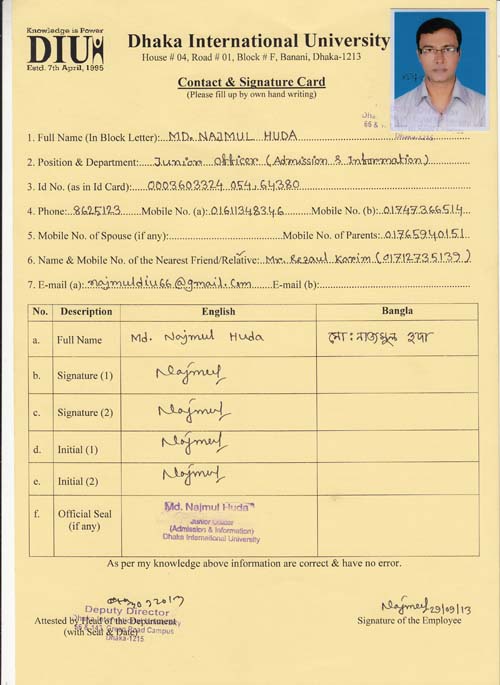 Knowledge is Power
DIU
Estd. 7th April, 1995
Dhaka International University
House # 04, Road # 01, Block # F, Banani, Dhaka-1213
Contact & Signature Card
(Please fill up by own hand writing)
1. Full Name (In Block Letter): MD. NAJMUL HUDA
2. Position & Department: Junior Officer (Admission & Information)
3. Id No. (as in Id Card): 0003603324 054,64380
4. Phone: 8625123 Mobile No. (a): 01611348346 Mobile No. (b): 01747366514
5. Mobile No. of Spouse (if any): Mobile No. of Parents: 01765940151
6. Name & Mobile No. of the Nearest Friend/Relative: Mr. Rezaul Karim (01712735139)
7. E-mail (a): najmuldiu66@gmail.com E-mail (b):
No. Description English Bangla
a. Full Name Md. Najmul Huda মো: নাজমুল হুদা
b. Signature (1) Najmul
c. Signature (2) Najmul
d. Initial (1) Najmul
e. Initial (2) Najmul
f. Official Seal (if any) Md. Najmul Huda
Junior Officer
(Admission & Information)
Dhaka International University
As per my knowledge above information are correct & have no error.
Najmul 29/09/13
Deputy Director
Attested by Head of the Department Signature of the Employee
(with Seal & Date)
66 & 143, Green Road Campus
Dhaka-1215